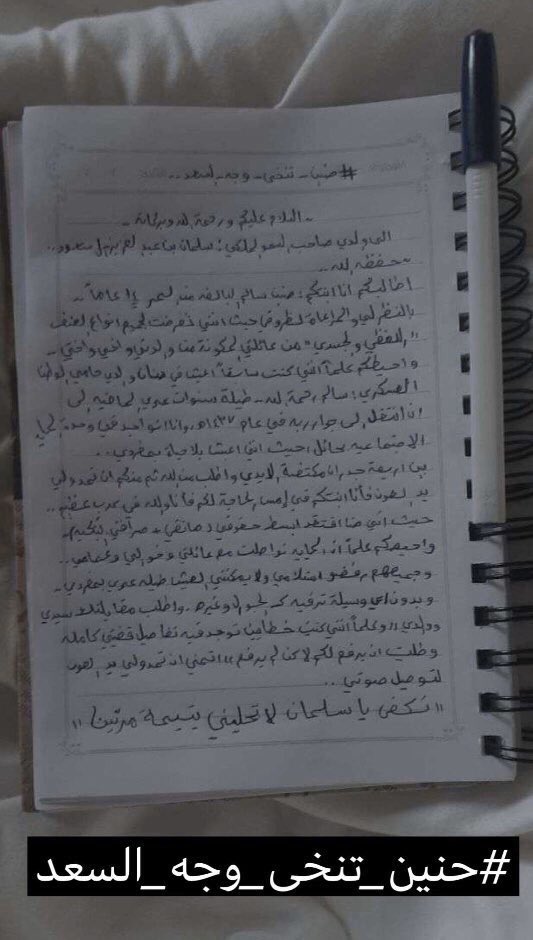 #حنين_تنخى_وجه_السعد..
~ السلام عليكم ورحمة الله وبركاته ~
الى والدي صاحب السمو الملكي: سلمان بن عبد العزيز ال سعود..
~ حفظه الله ~
اطالبكم انا ابنتكم: حنين سالم البالغه من العمر عاماً ~
بالنظر لي والمراعاة لظروفي حيث انني تعرضت لجميع انواع العنف
"اللفظي والجسدي" من عائلتي المكونة من والدتي واخي واختي ~
واحيطكم علماً انني كنت سابقاً اعيش في والدي حامي الوطن
العسكري: سالم رحمة الله ~ طيلة سنوات عمري الماضيه الى
ان انتقل الى جوار ربه في عام ١٤٣٧هـ وانا اتواجد في وحدة الحمايه
الاجتماعيه بحائل، حيث اني اعيش بلا حياة بمفردي..
بين اربعة جدران مكتفة الايدي واطلب من الله ثم منكم ان تمدو لي
يد العون فأنا ابنتكم في امس الحاجة لكم فأنا والله في كرب عظيم..
حيث انني هنا افتقد ابسط حقوقي (
واحيطكم علماً ان الحمايه تواصلت مع عائلتي
وجميعهم رفضو استلامي ولا يمكنني العيش طيلة عمري بمفردي ~
وبدون اي وسيلة ترفيه كـ الجوال وغيره ~ واطلب مقابلتك سيدي
ووالدي،، وعلماً انني كتبت خطابين توجد فيه تفاصيل قضيتي كامله
وطلبت ان يرفع لكم لاكن لم يرفع،، اتمنى ان تمدو لي يد العون
لتوصيل صوتي..
"تكفى يا سلمان لا تخليني يتيمة مرتين"
#حنين_تنخى_وجه_السعد